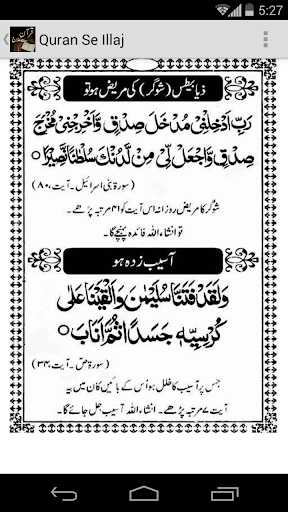 5:27
Quran Se Illaj
ذیابیطس (شوگر) کی مریض ہو تو
رَبِّ اَدْخِلْنِیْ مُدْخَلَ صِدْقٍ وَّاَخْرِجْنِیْ مُخْرَجَ
صِدْقٍ وَّاجْعَلْ لِّیْ مِنْ لَّدُنْكَ سُلْطٰنًا نَّصِیْرًا
(سورۃ بنی اسرائیل۔ آیت، ۸۰)
شوگر کا مریض روزانہ اس آیت کو ۴۱ مرتبہ پڑھے۔
تو انشاء اللہ فائدہ پہنچے گا۔
آسیب زدہ ہو
وَلَقَدْ فَتَنَّا سُلَیْمٰنَ وَاَلْقَیْنَا عَلٰی
كُرْسِیِّهٖ جَسَدًا ثُمَّ اَنَابَ
(سورۃ ص۔ آیت، ۳۴)
جس پر آسیب کا خلل ہو اُس کے بائیں کان میں یہ
آیت ۷ مرتبہ پڑھے۔ انشاء اللہ آسیب جل جائے گا۔